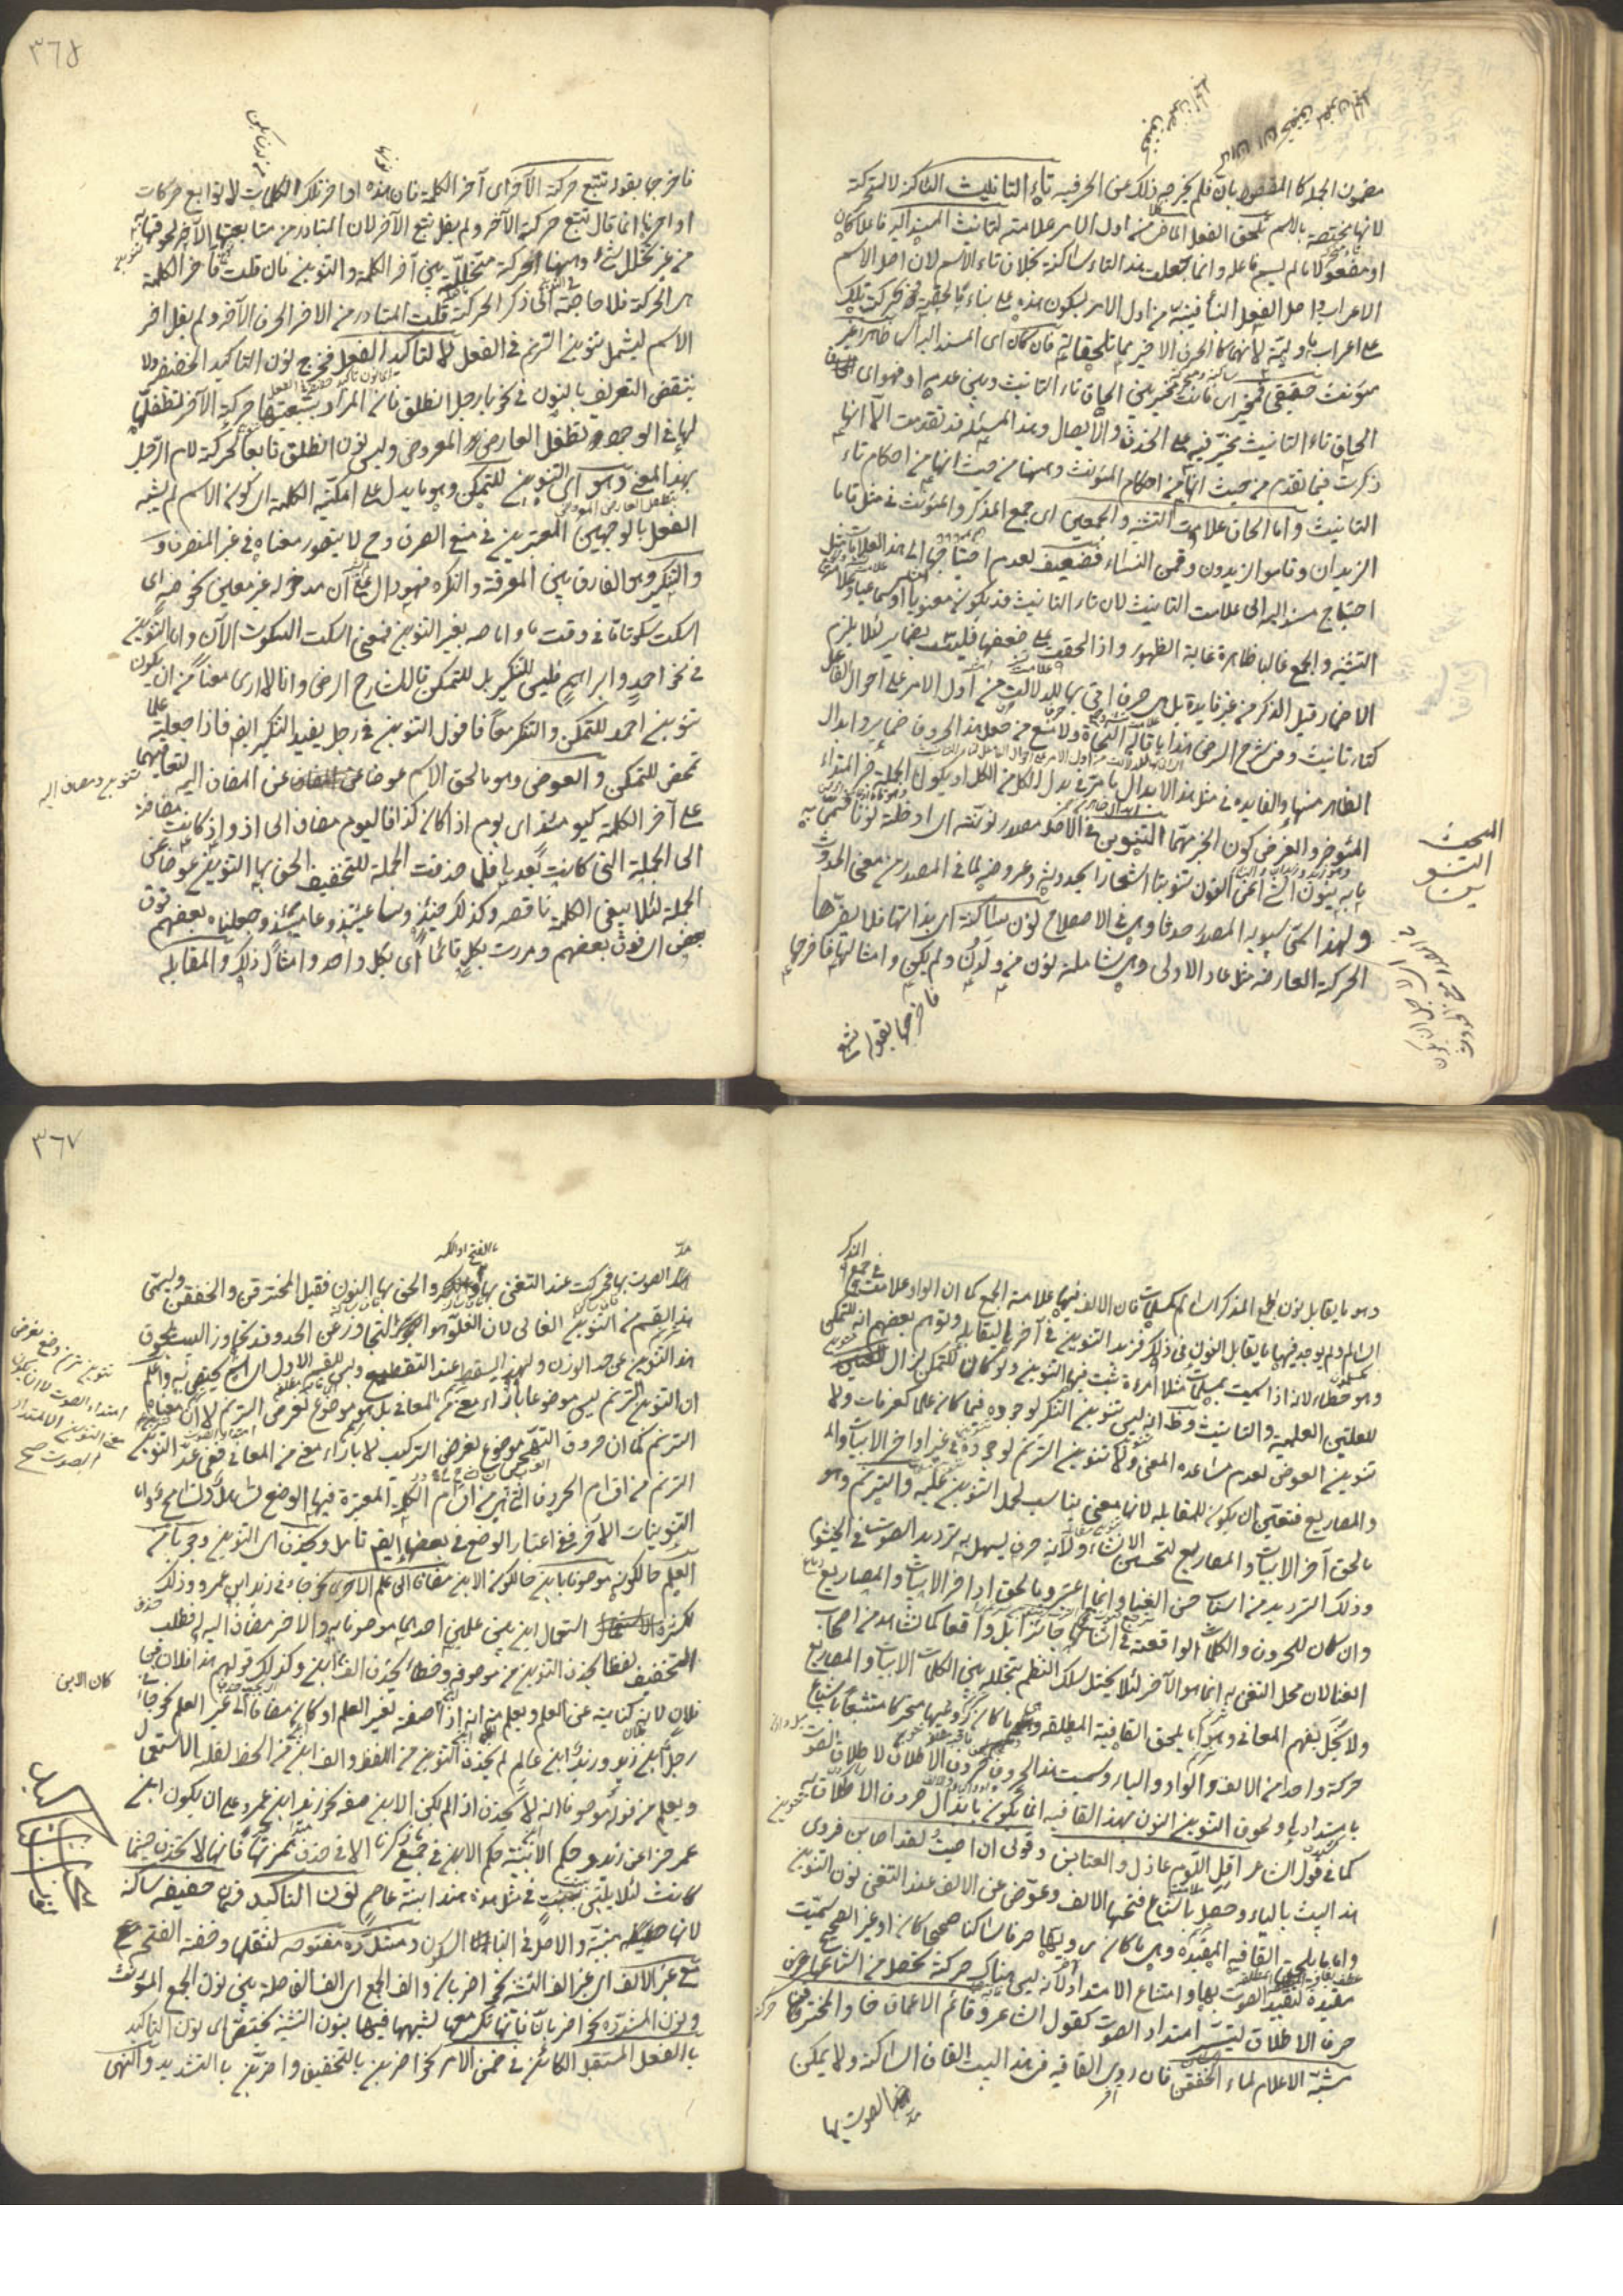 مضمون الجملة كالمفصول بان فلم يخرجه ذلك عن الحرفيه تاء التانيث الساكنة لا المتحركة
لانها مختصة بالاسم تلحق الفعل الماضى من اول الامر علامة لتانيث المسند اليه فاعلا كان
او مفعولا ما لم يسم فاعله وانما جعلت هذه التاء ساكنة بخلاف تاء الاسم لان اصل الاسم
الاعراب واصل الفعل البناء فنبه من اول الامر بسكون هذه على بناء ما لحقته وبحركة تلك
على اعراب ما وليته لانهما كالحرف الاخير مما تلحقانه فان كان اى المسند اليه اسما ظاهرا غير
مؤنث حقيقى فمخير اى فانت مخير بين الحاق تاء التانيث وبين عدمه او فهو اى
الحاق تاء التانيث مخير فيه على الحذف والايصال وهذه المسئلة قد تقدمت الا انها
ذكرت فيما تقدم من حيث انها من احكام المؤنث وههنا من حيث انها من احكام تاء
التانيث واما الحاق علامة التثنية والجمعين اى جمع المذكر والمؤنث فى مثل قاما
الزيدان وقاموا الزيدون وقمن النساء فضعيف لعدم احتياجها الى هذه العلامات مثل
احتياج مسند اليه الى علامة التانيث لان تاء التانيث قد يكون معنويا او سماعيا وعلامة
التثنية والجمع غالبا ظاهرة غاية الظهور واذا الحقت على ضعفها فليست بضمائر لئلا يلزم
الاضمار قبل الذكر من غير فائدة بل هى حروف اتى بها للدلالة من اول الامر على احوال الفاعل
كتاء تانيث وفى شرح الرضى هذا ما قاله النحاة ولا منع من جعل هذه الحروف ضمائر وابدال
الظاهر منها والفائدة فى مثل هذا الابدال ما مر فى بدل الكل من الكل او يكون الجملة خبر المبتداء
المؤخر والغرض كون الخبر مهما التنوين فى الاصل مصدر نونته اى ادخلته نونا فسمى به
ما به ينون الشئ اعنى النون تنوينا اشعارا بحدوثه وعروضه لما فى المصدر من معنى الحدوث
ولهذا سمى سيبويه المصدر حدثا وهى فى الاصطلاح نون ساكنة اى بذاتها فلا يضرها
الحركة العارضة مثل عاد الاولى وهى شاملة لنون من ولدن ولم يكن وامثالها فاخرجها
فاخرجها بقوله تتبع
البحث
التنو
ين
٣٦٥
فاخرجها بقوله تتبع حركة الآخر اى آخر الكلمة فان هذه اواخر تلك الكلمات لا توابع حركات
اواخرها انما قال تتبع حركة الآخر ولم يقل تتبع الآخر لان المتبادر من متابعتها الآخر لحوقها به
من غير تخلل شئ وههنا الحركة متخللة بين آخر الكلمة والتنوين فان قلت آخر الكلمة
هى الحركة فلا حاجة الى ذكر الحركة قلت المتبادر من الاخر الحرف الآخر ولم يقل اخر
الاسم ليشمل تنوين الترنم فى الفعل لا لتاكيد الفعل فخرج نون التاكيد الخفيفة ولا
ينتقض التعريف بالنون فى نحو يا رجل انطلق فان المراد بتبعيتها حركة الآخر تطفلها
لها فى الوجود تطفل العارض المعروض وليس نون انطلق تابعا لحركة لام الرجل
بهذا المعنى وهو اى التنوين للتمكن وهو ما يدل على امكنية الكلمة اى كون الاسم لم يشبه
الفعل بالوجهين المعتبرين فى منع الصرف وح لا يتصور معناه فى غير المنصرف و
والتنكير وهو الفارق بين المعرفة والنكرة فهو دال على ان مدخوله غير معين نحو صه اى
اسكت سكوتا فى وقت ما واما صه بغير التنوين فمعنى اسكت السكوت الآن واما التنوين
فى نحو احمد وابراهيم فليس للتنكير بل للتمكن قال الشارح الرضى وانا لا ارى منعا من ان يكون
تنوين احمد للتمكن والتنكير معا فاقول التنوين فى رجل يفيد التنكير ايضا فاذا جعلته علما
تمحض للتمكن والعوض وهو ما لحق الاسم عوضا عن المضاف اليه لتعاقبهما
على آخر الكلمة كيومئذ اى يوم اذا كان كذا فاليوم مضاف الى اذ واذ كانت مضافة
الى الجملة التى كانت بعدها فلما حذفت الجملة للتخفيف الحق بها التنوين عوضا عن
الجملة لئلا يبقى الكلمة ناقصة وكذلك حينئذ وساعتئذ وعامئذ وجعلنا بعضهم فوق
بعض اى فوق بعضهم ومررت بكل قائما اى بكل واحد وامثال ذلك والمقابلة
تنوين ومضاف اليه
وهو ما يقابل نون جمع المذكر السالم كمسلمات فان الالف فيها علامة الجمع كما ان الواو علامة فى جمع المذكر
السالم ولم يوجد فيها ما يقابل النون فى ذلك فزيد التنوين فى آخرها ليقابله وتوهم بعضهم انه للتمكن
وهو خطاء لانه اذا سميت بمسلمات مثلا امراة ثبت فيها التنوين ولو كان للتمكن لزال
للعلتين العلمية والتانيث وظ انه ليس تنوين التنكر لوجوده فيما كان علما كعرفات ولا
تنوين العوض لعدم مساعدة المعنى ولا تنوين الترنم لوجوده فى غير اواخر الابيات والم
والمصاريع فتعين ان يكون للمقابلة لانها معنى يناسب لحمل التنوين عليه والترنم وهو
ما لحق آخر الابيات والمصاريع لتحسين الانشاد لانه حرف يسهل به ترديد الصوت فى الخيشوم
وذلك الترديد من اسباب حسن الغناء وانما اعتبروا ما لحق اواخر الابيات والمصاريع
وان كان للحروف والكلمات الواقعة فى اثنائها جائزا بل واقعا كما يشاهد من اصحاب
الغنا لان محل التغنى به انما هو الآخر لئلا يختل سلك النظم بتخلله بين الكلمات الابيات والمصاريع
ولا يخل بفهم المعانى وهو اما يلحق القافية المطلقة وهى ما كان رويها متحركا مشبعا باشباع
حركة واحدا من الالف والواو والياء وسميت هذه الحروف حروف الاطلاق لاطلاق الصوت
بامتدادها ولحوق التنوين النون بهذه القافية انما يكون بابدال حروف الاطلاق به
كما فى قول الشاعر اقلى اللوم عاذل والعتابن وقولى ان اصبت لقد اصابن فروى
هذا البيت بالباء وحصل باشباع فتحها الالف وعوض عن الالف عند التغنى نون التنوين
واما ما يلحق القافية المقيدة وهى ما كان رويها حرفا ساكنا صحيحا كان او غير الصحيح سميت
مقيدة لتقييد الصوت بها وامتناع الامتداد لانه ليس هناك حركة تحصل من اشباعها حرف
حرف الاطلاق ليتيسر امتداد الصوت كقول الشاعر وقاتم الاعماق خاوى المخترقن
مشتبه الاعلام لماع الخفقن فان روى القافية فى هذا البيت القاف الساكنة ولا يمكن
مد الصوت بها
٣٦٧
مد الصوت بها فحركت عند التغنى بها بالفتح او الكسر والحق بها النون فقيل المخترقن والخفقن ويسمى
هذا القسم من التنوين الغالى لان الغلو هو التجاوز عن الحد وقد تجاوز البيت بلحوق
هذا التنوين عن حد الوزن ولهذا يسقط عند التقطيع وليس للقسم الاول اسم يختص به واعلم
ان التنوين الترنم ليس موضوعا بازاء معنى من المعانى بل هو موضوع لغرض الترنم لا ان معناه
الترنم كما ان حروف التهجى موضوع لغرض التركيب لا بازاء معنى من المعانى ففى عد التنوين
الترنم من اقسام الحروف التى هى من اقسام الكلمة المعتبرة فيها الوضع تساهل وتسامح واما
التنوينات الاخر ففى اعتبار الوضع فى بعضها ايضا تامل ويحذف اى التنوين وجوبا من
العلم حال كونه موصوفا بابن حال كون الابن مضافا الى علم آخر نحو جاءنى زيد بن عمرو وذلك
لكثرة استعمال ابن بين علمين احدهما موصوف به والاخر مضاف اليه له فطلب
التخفيف لفظا بحذف التنوين من موصوفه وخطا بحذف الف ابن وكذلك قولهم هذا فلان بن
فلان لانه كناية عن العلم ويعلم منه انه اذا صفة لغير العلم او كان مضافا الى غير العلم نحو جاءنى
رجل ابن زيد وزيد ابن عالم لم يحذف التنوين من اللفظ والف ابن من الخط لقلة الاستعمال
ويعلم من قوله موصوفا انه لا يحذف اذا لم يكن الابن صفة نحو زيد ابن عمرو على ان يكون ابن
عمر خبرا عن زيد وحكم الابنة حكم الابن فى جميع ما ذكرنا الا فى حذف همزتها فانها لا تحذف حيثما
كانت لئلا يلتبس ببنت فى مثل هذه هند ابنة عاصم نون التاكيد فهى خفيفة ساكنة
لانها مبنية والاصل فى البناء السكون ومشددة مفتوحة لثقلها وخفة الفتح مع
مع غير الالف اى غير الف التثنية نحو اضربان والف الجمع اى الف الفاصلة بين نون الجمع المؤنث
ونون المشددة نحو اضربنان فانها تكسر معها لشبهها فيهما بنون التثنية تختص اى نون التاكيد
بالفعل المستقبل الكائن فى ضمن الامر نحو اضربن بالتخفيف واضربن بالتشديد والنهى
كان الابن